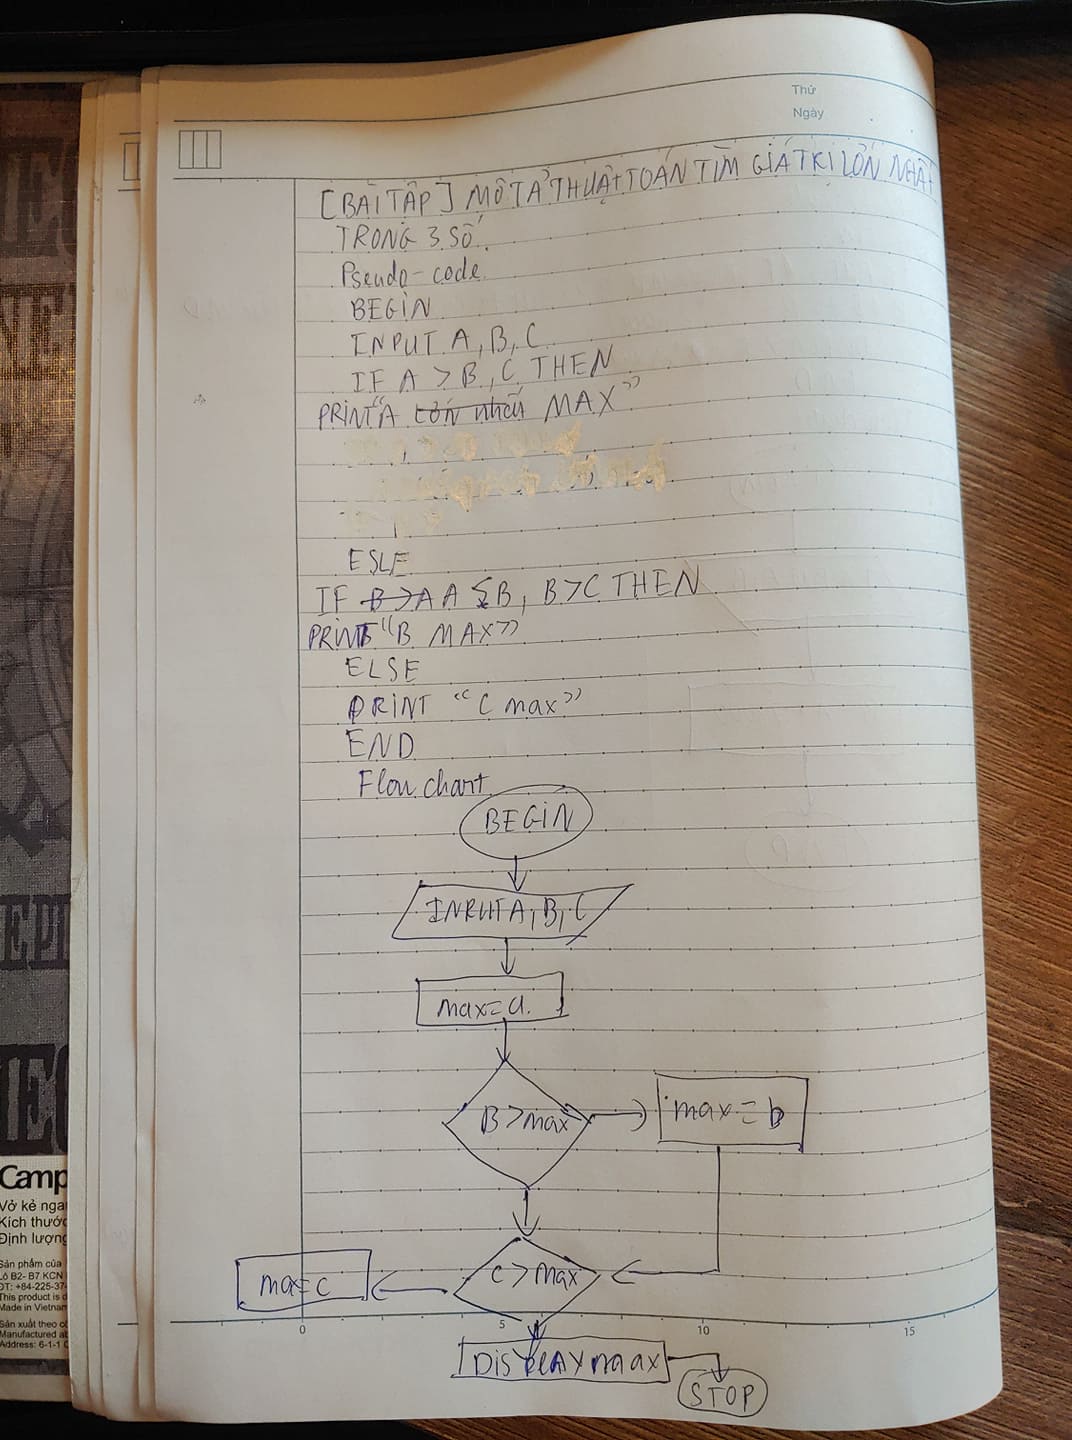 Thứ
Ngày
[BÀI TẬP] MÔ TẢ THUẬT TOÁN TÌM GIÁ TRỊ LỚN NHẤT
TRONG 3 SỐ.
Pseudo-code
BEGIN
INPUT A, B, C
IF A > B, C THEN
PRINT "A lớn nhất MAX"
ESLE
IF B > A A ≤ B, B > C THEN
PRINT "B MAX"
ELSE
PRINT "C max"
END
Flow chart
BEGIN
INPUT A, B, C
max = a
B > max
max = b
C > max
max = c
0 5 10 15
DISPLAY max
STOP
Camp
Vở kẻ nga
Kích thước
Định lượng
Sản phẩm của
Lô B2- B7 KCN
ĐT: +84-225-37
This product is d
Made in Vietnam
Sản xuất theo
Manufactured
Address: 6-1-1